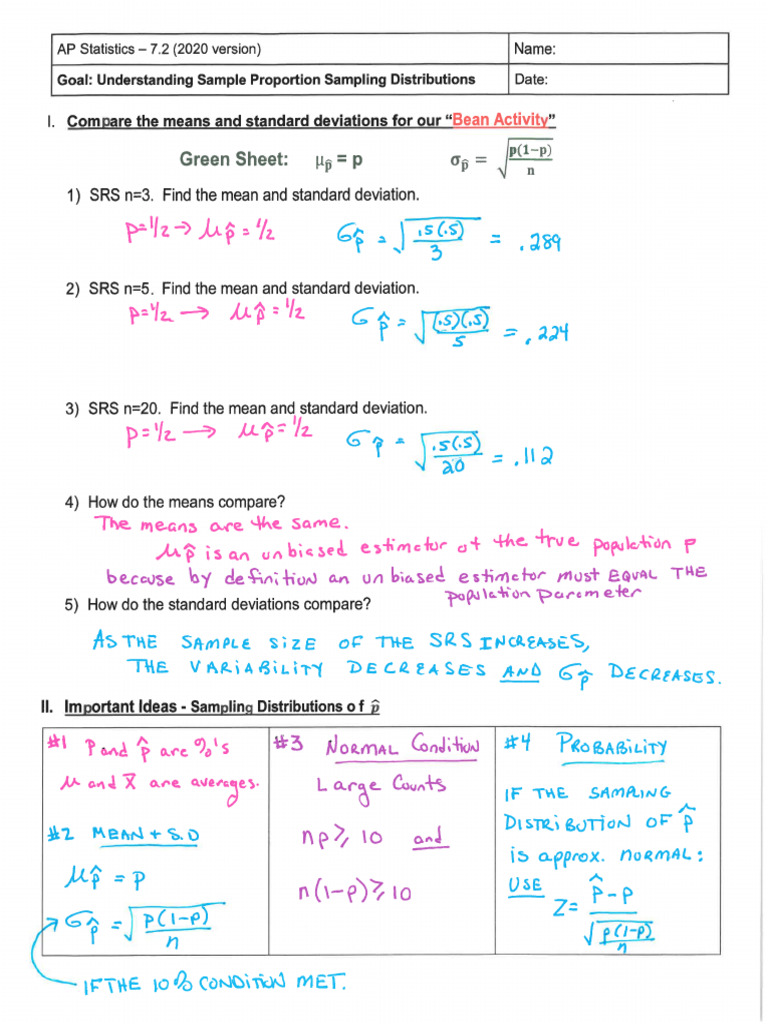 AP Statistics – 7.2 (2020 version)
Name:
Goal: Understanding Sample Proportion Sampling Distributions
Date:
I. Compare the means and standard deviations for our "Bean Activity"
Green Sheet: μp̂ = p σp̂ = √(p(1−p)/n)
1) SRS n=3. Find the mean and standard deviation.
p=1/2 → μp̂ = 1/2 σp̂ = √(.5(.5)/3) = .289
2) SRS n=5. Find the mean and standard deviation.
p=1/2 → μp̂ = 1/2 σp̂ = √((.5)(.5)/5) = .224
3) SRS n=20. Find the mean and standard deviation.
p=1/2 → μp̂ = 1/2 σp̂ = √(.5(.5)/20) = .112
4) How do the means compare?
The means are the same.
μp̂ is an unbiased estimator of the true population p
because by definition an unbiased estimator must EQUAL THE
population parameter
5) How do the standard deviations compare?
AS THE SAMPLE SIZE OF THE SRS INCREASES,
THE VARIABILITY DECREASES AND σp̂ DECREASES.
II. Important Ideas - Sampling Distributions of p̂
#1 P and p̂ are %'s
μ and x̄ are averages.
#2 MEAN + S.D
μp̂ = p
σp̂ = √(p(1-p)/n)
IF THE 10% CONDITION MET.
#3 NORMAL Condition
Large Counts
np ≥ 10 and
n(1-p) ≥ 10
#4 PROBABILITY
IF THE SAMPLING
DISTRIBUTION OF p̂
is approx. NORMAL:
USE
Z = (p̂ - p)/√(p(1-p)/n)